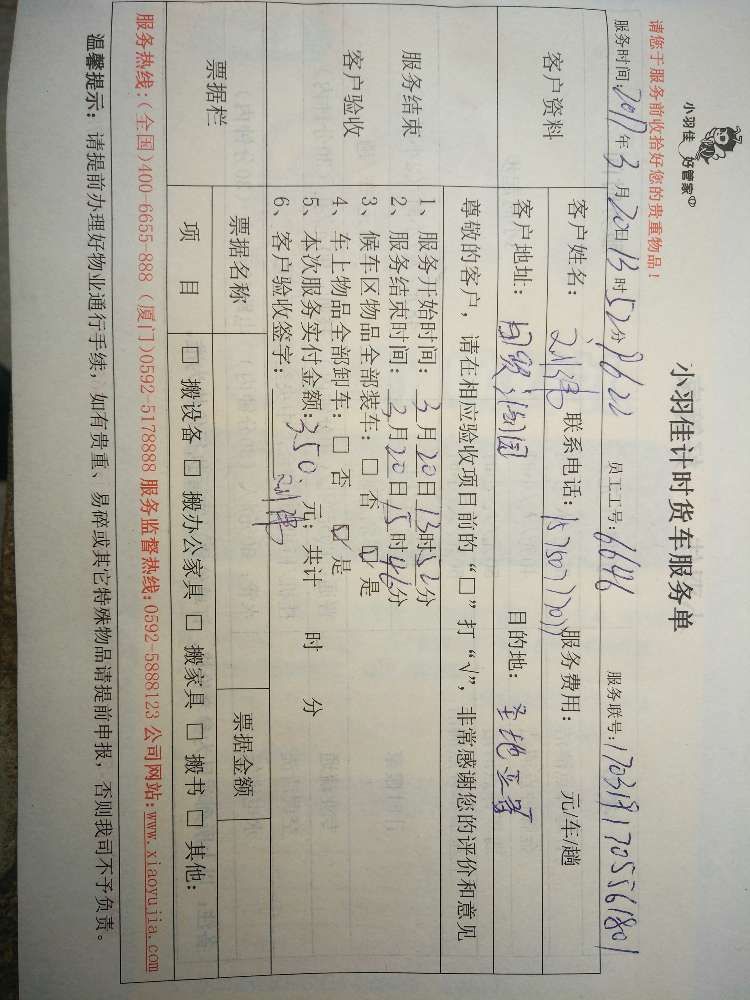 小羽佳 好管家
小羽佳计时货车服务单
请您于服务前收拾好您的贵重物品！
服务时间：2017年3月20日13时52分 员工工号：6646 服务联号：1703191705561801
客户资料
客户姓名： 联系电话： 服务费用： 元/车/趟
客户地址： 目的地：
服务结束
客户验收
尊敬的客户，请在相应验收项目前的“□”打“√”，非常感谢您的评价和意见
1、服务开始时间：3月20日13时52分
2、服务结束时间：3月20日15时46分
3、候车区物品全部装车：□ 否 ☑ 是
4、车上物品全部卸车：□ 否 ☑ 是
5、本次服务实付金额：350 元；共计 时 分
6、客户验收签字：
票据栏
票据名称 票据金额
项 目 □ 搬设备 □ 搬办公家具 □ 搬家具 □ 搬书 □ 其他：
服务热线：（全国）400-6655-888（厦门）0592-5178888 服务监督热线：0592-5888123 公司网站：www.xiaoyujia.com
温馨提示：请提前办理好物业通行手续，如有贵重、易碎或其它特殊物品请提前申报，否则我司不予负责。